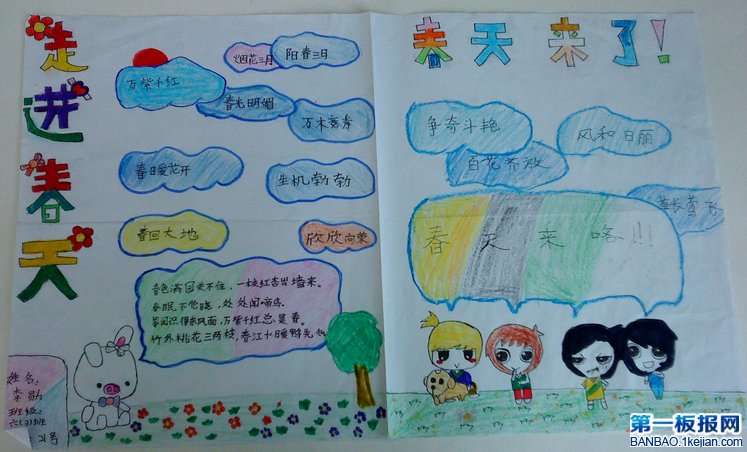 走进春天
春天来了!
烟花三月
阳春三月
万紫千红
春光明媚
万木争春
春日暖花开
生机勃勃
春回大地
欣欣向荣
春色满园关不住,一枝红杏出墙来。
春眠不觉晓,处处闻啼鸟。
等闲识得东风面,万紫千红总是春。
竹外桃花三两枝,春江水暖鸭先知
争奇斗艳
风和日丽
百花齐放
草长莺飞
春天来咯!!!
姓名:
李
班级:
六(2)班
21号
第一板报网
BANBAO.1kejian.com